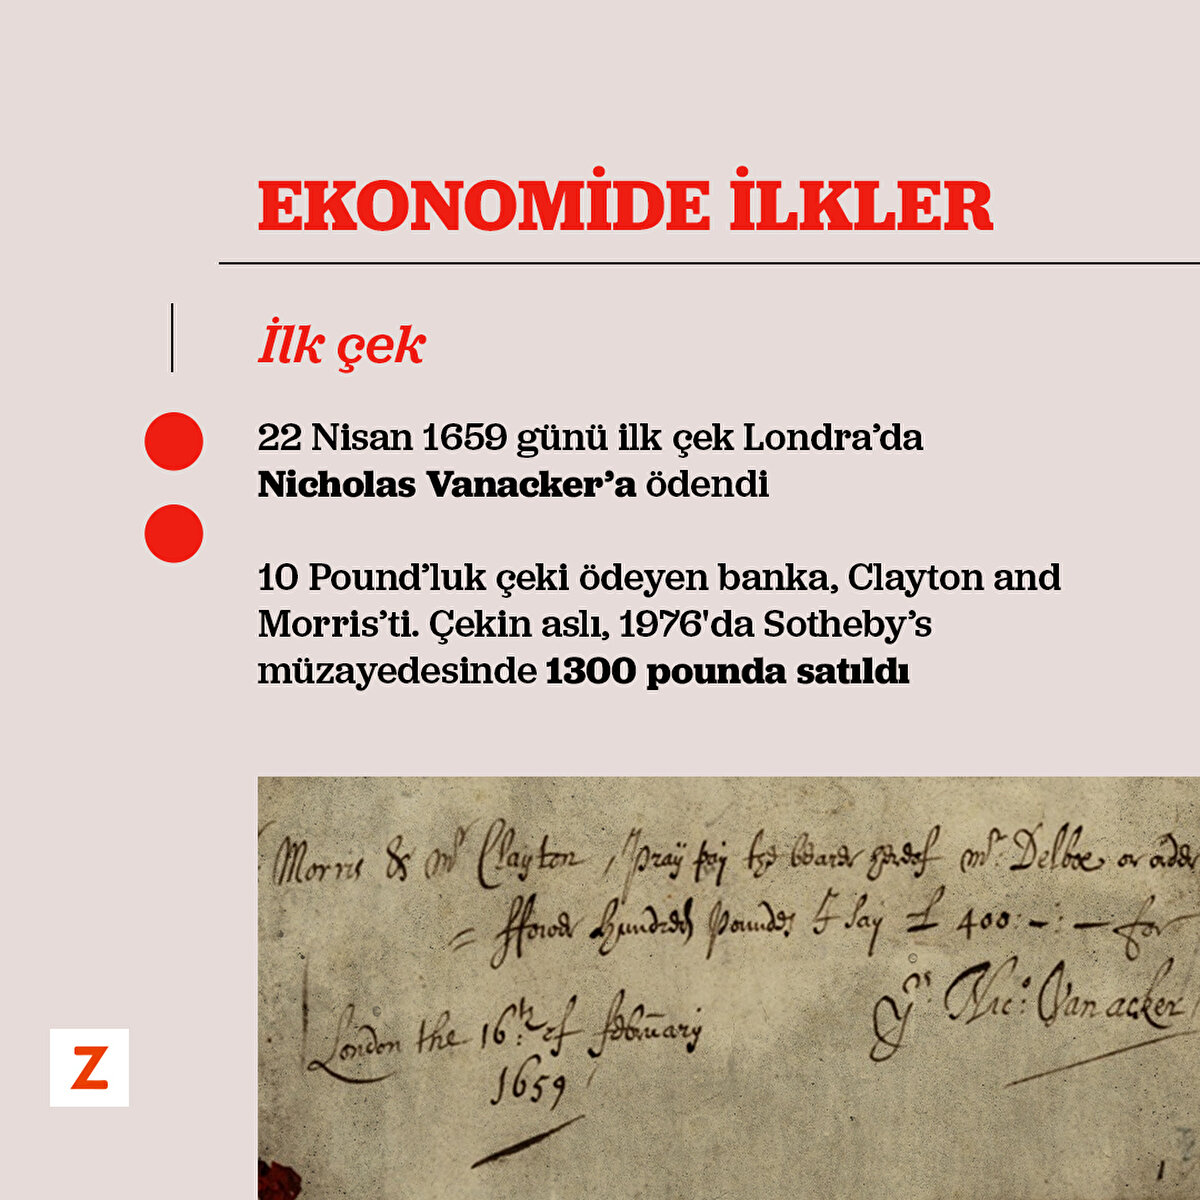 EKONOMİDE İLKLER
İlk çek
22 Nisan 1659 günü ilk çek Londra’da
Nicholas Vanacker’a ödendi
10 Pound’luk çeki ödeyen banka, Clayton and
Morris’ti. Çekin aslı, 1976'da Sotheby’s
müzayedesinde 1300 pounda satıldı
Morris & Mr Clayton / Pray pay the bearer hereof Mr. Delboe or order
= ffower hundred Pounds I say £ 400:-:- for
Yrs. Nic: Vanacker
London the 16th. of february
1659
Z